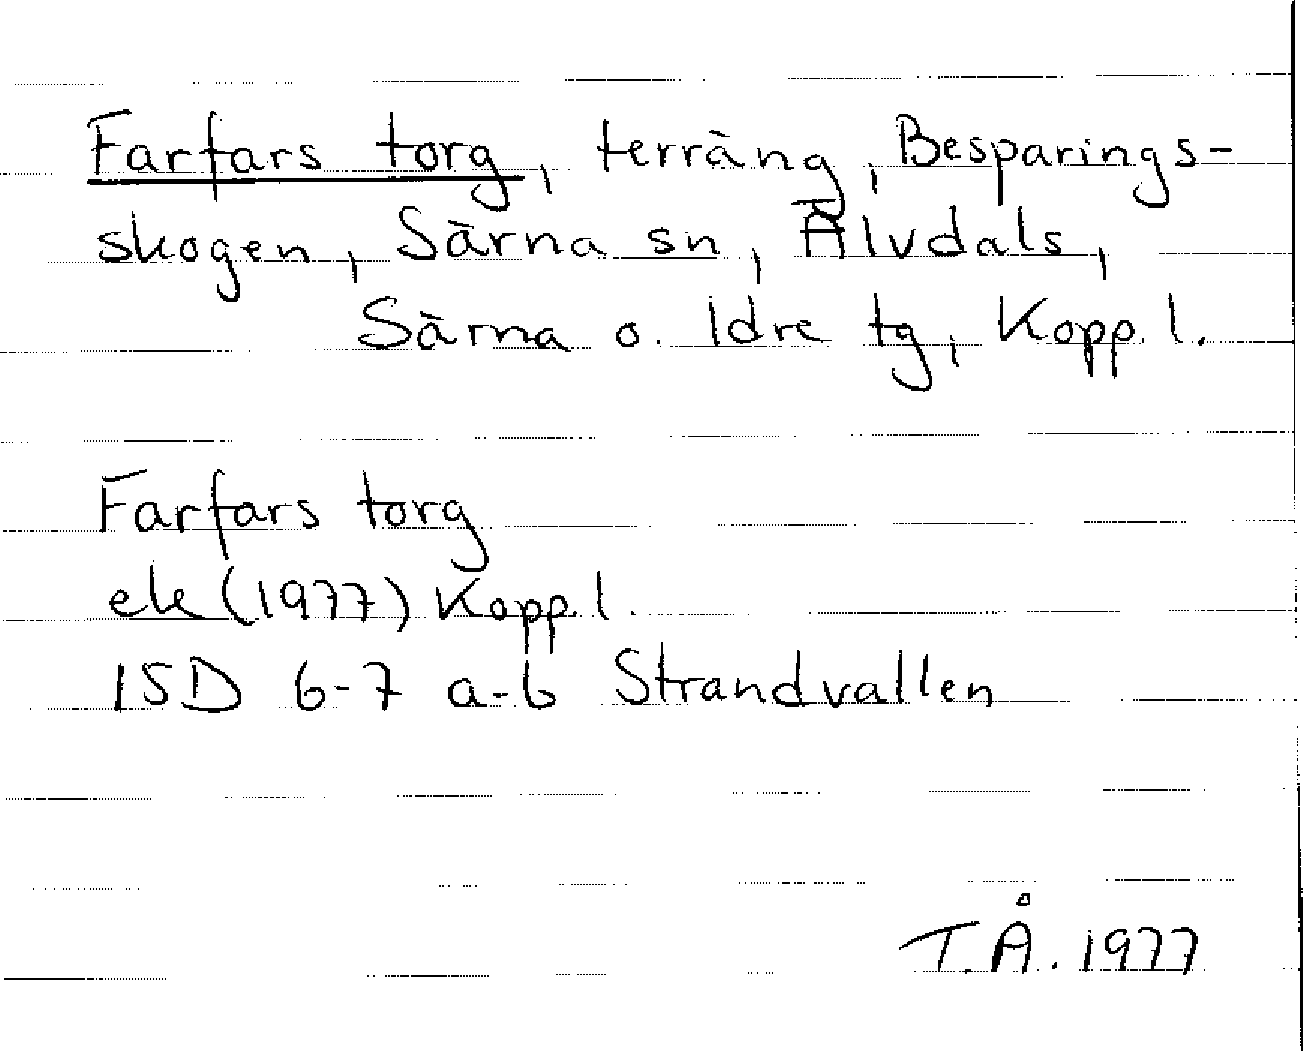 Farfars torg, terräng, Besparings-
skogen, Särna sn, Älvdals,
Särna o. Idre tg, Kopp. l.
Farfars torg
ek (1977) Kopp. l.
15D 6-7 a-b Strandvallen
T.Å. 1977